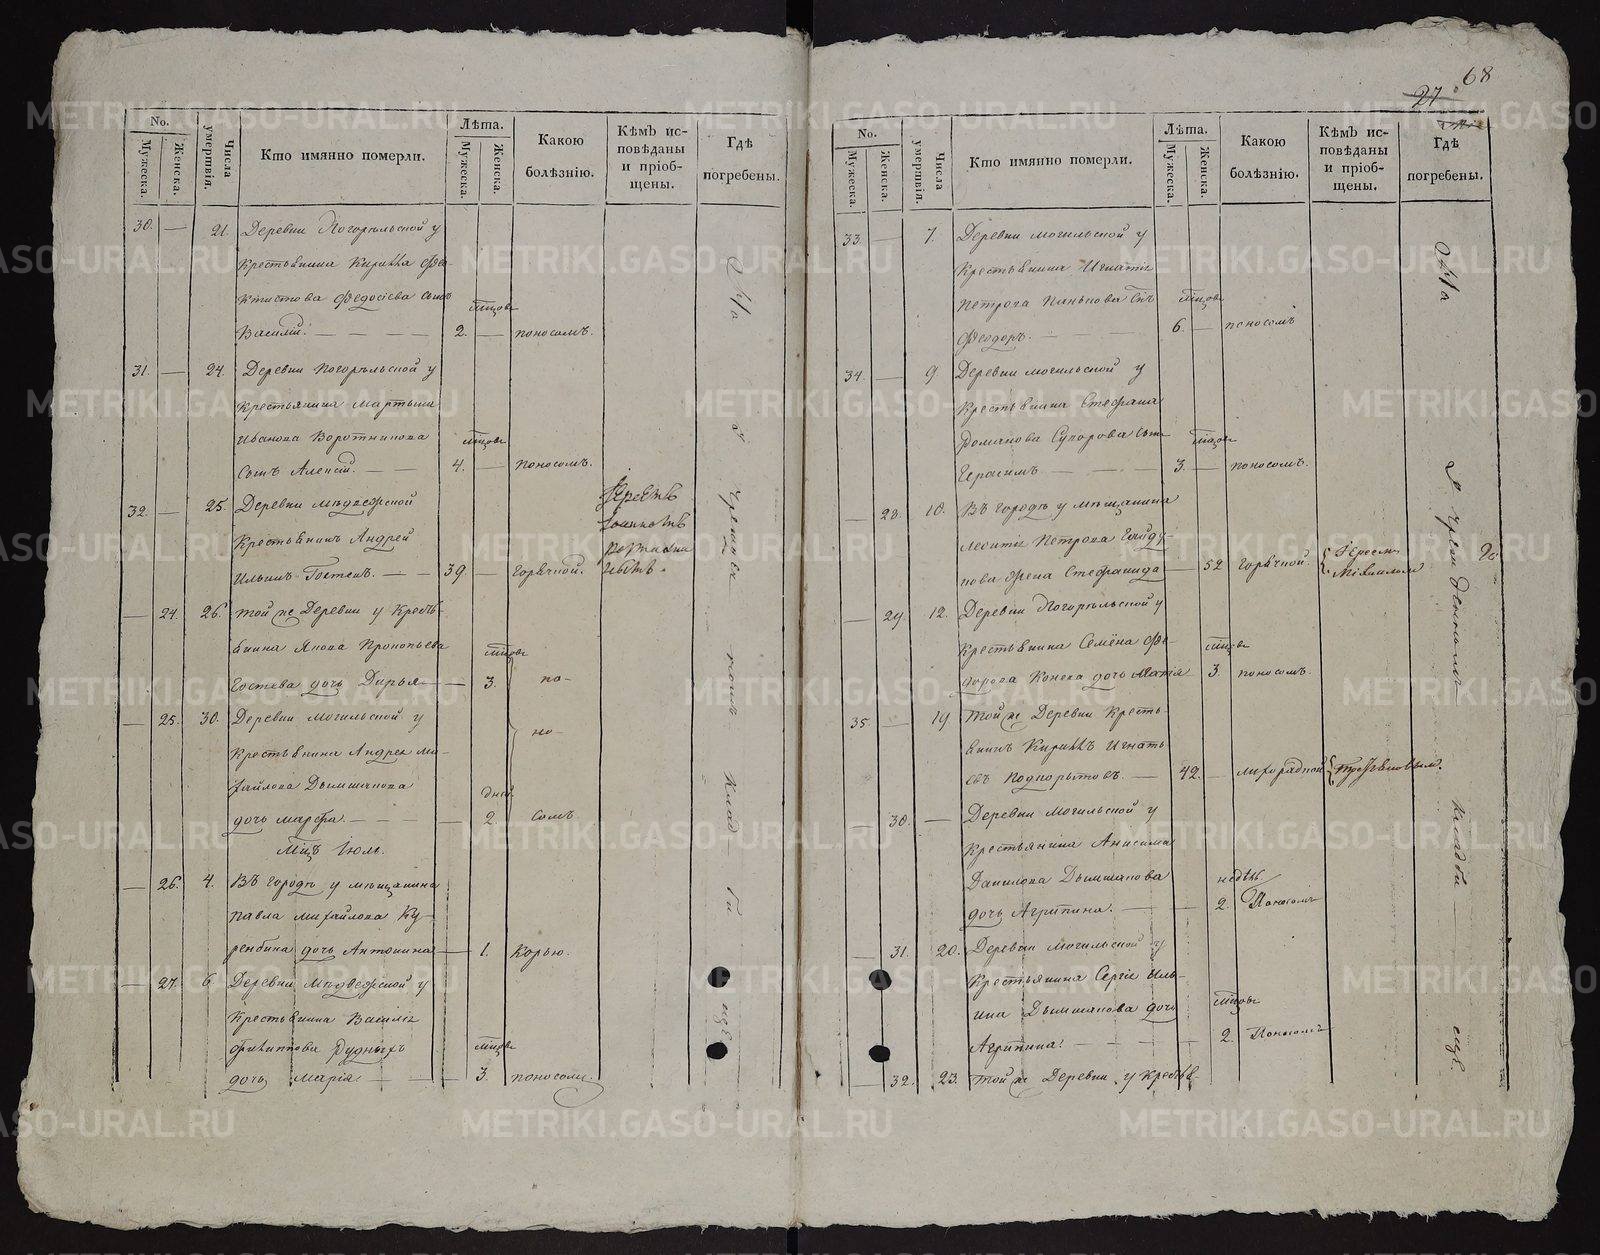 68
27
No.
Мужеска.
Женска.
Числа умершвія.
Кто имянно померли.
Лѣта.
Мужеска.
Женска.
Какою болѣзнію.
Кѣмъ исповѣданы и пріобщены.
Гдѣ погребены.
30. — 21. Деревни Погорѣльской у
крестьянина Кирилла Фео-
ктистова Федосіева сынъ
мцовъ
Василій. — — — — 2. — поносомъ.
31. — 24. Деревни Погорѣльской у
крестьянина Мартына
Иванова Воротникова
мцовъ
сынъ Алексій. — — 4. — поносомъ.
32. — 25. Деревни Медведской
крестьянинъ Андрей
Ильинъ Гостевъ. — — 39. — горячкой.
— 24. 26. той же Деревни у кресть-
янина Якова Прокопьева
мцовъ
Гостева дочь Дарья — — 3. по-
— 25. 30. Деревни Могильской у
но-
крестьянина Андрея Ми-
хайлова Дымшакова
дней
дочь Марфа. — — — — 2. сомъ
Мцъ Іюль.
— 26. 4. Въ городѣ у мѣщанина
Павла Михайлова Ку-
ренбина дочь Антонина — 1. Корью.
— 27. 6 Деревни Медведской у
крестьянина Василія
Филиппова Рудныхъ
мцовъ
дочь Марія — — — 3. поносомъ.
На градскомъ кладбищѣ
No.
Мужеска.
Женска.
Числа умершвія.
Кто имянно померли.
Лѣта.
Мужеска.
Женска.
Какою болѣзнію.
Кѣмъ исповѣданы и пріобщены.
Гдѣ погребены.
33. — 7. Деревни Могильской у
крестьянина Игнатія
Петрова Панькова сынъ
мцовъ
Феодоръ. — — 6. — поносомъ
34. — 9 Деревни Могильской у
крестьянина Стефана
Романова Сугорова сынъ
мцовъ
Герасимъ — — — 3. — поносомъ.
— 28. 10. Въ городѣ у мѣщанина
Леонтія Петрова
жена Стефанида — 52 горячкой. Іереемъ
Михаиломъ
— 29. 12. Деревни Погорѣльской у
крестьянина Семёна Фе-
мцовъ
дорова Конева дочь 3. поносомъ.
35 — 19 той же Деревни кресть-
янинъ Кириллъ Игнать-
евъ Подкорытовъ. — 42. — лихорадкой
— 30. — Деревни Могильской у
крестьянина Анисима
Данилова Дымшакова
недѣль
дочь Агрипина. — — 2. Поносомъ
— 31. 20. Деревни Могильской у
крестьянина Сергія Иль-
ина Дымшакова дочь
мцовъ
Агрипина. — — — 2. Поносомъ
— 32. 23. той же Деревни у кресть-
На градскомъ кладбищѣ
METRIKI.GASO-URAL.RU